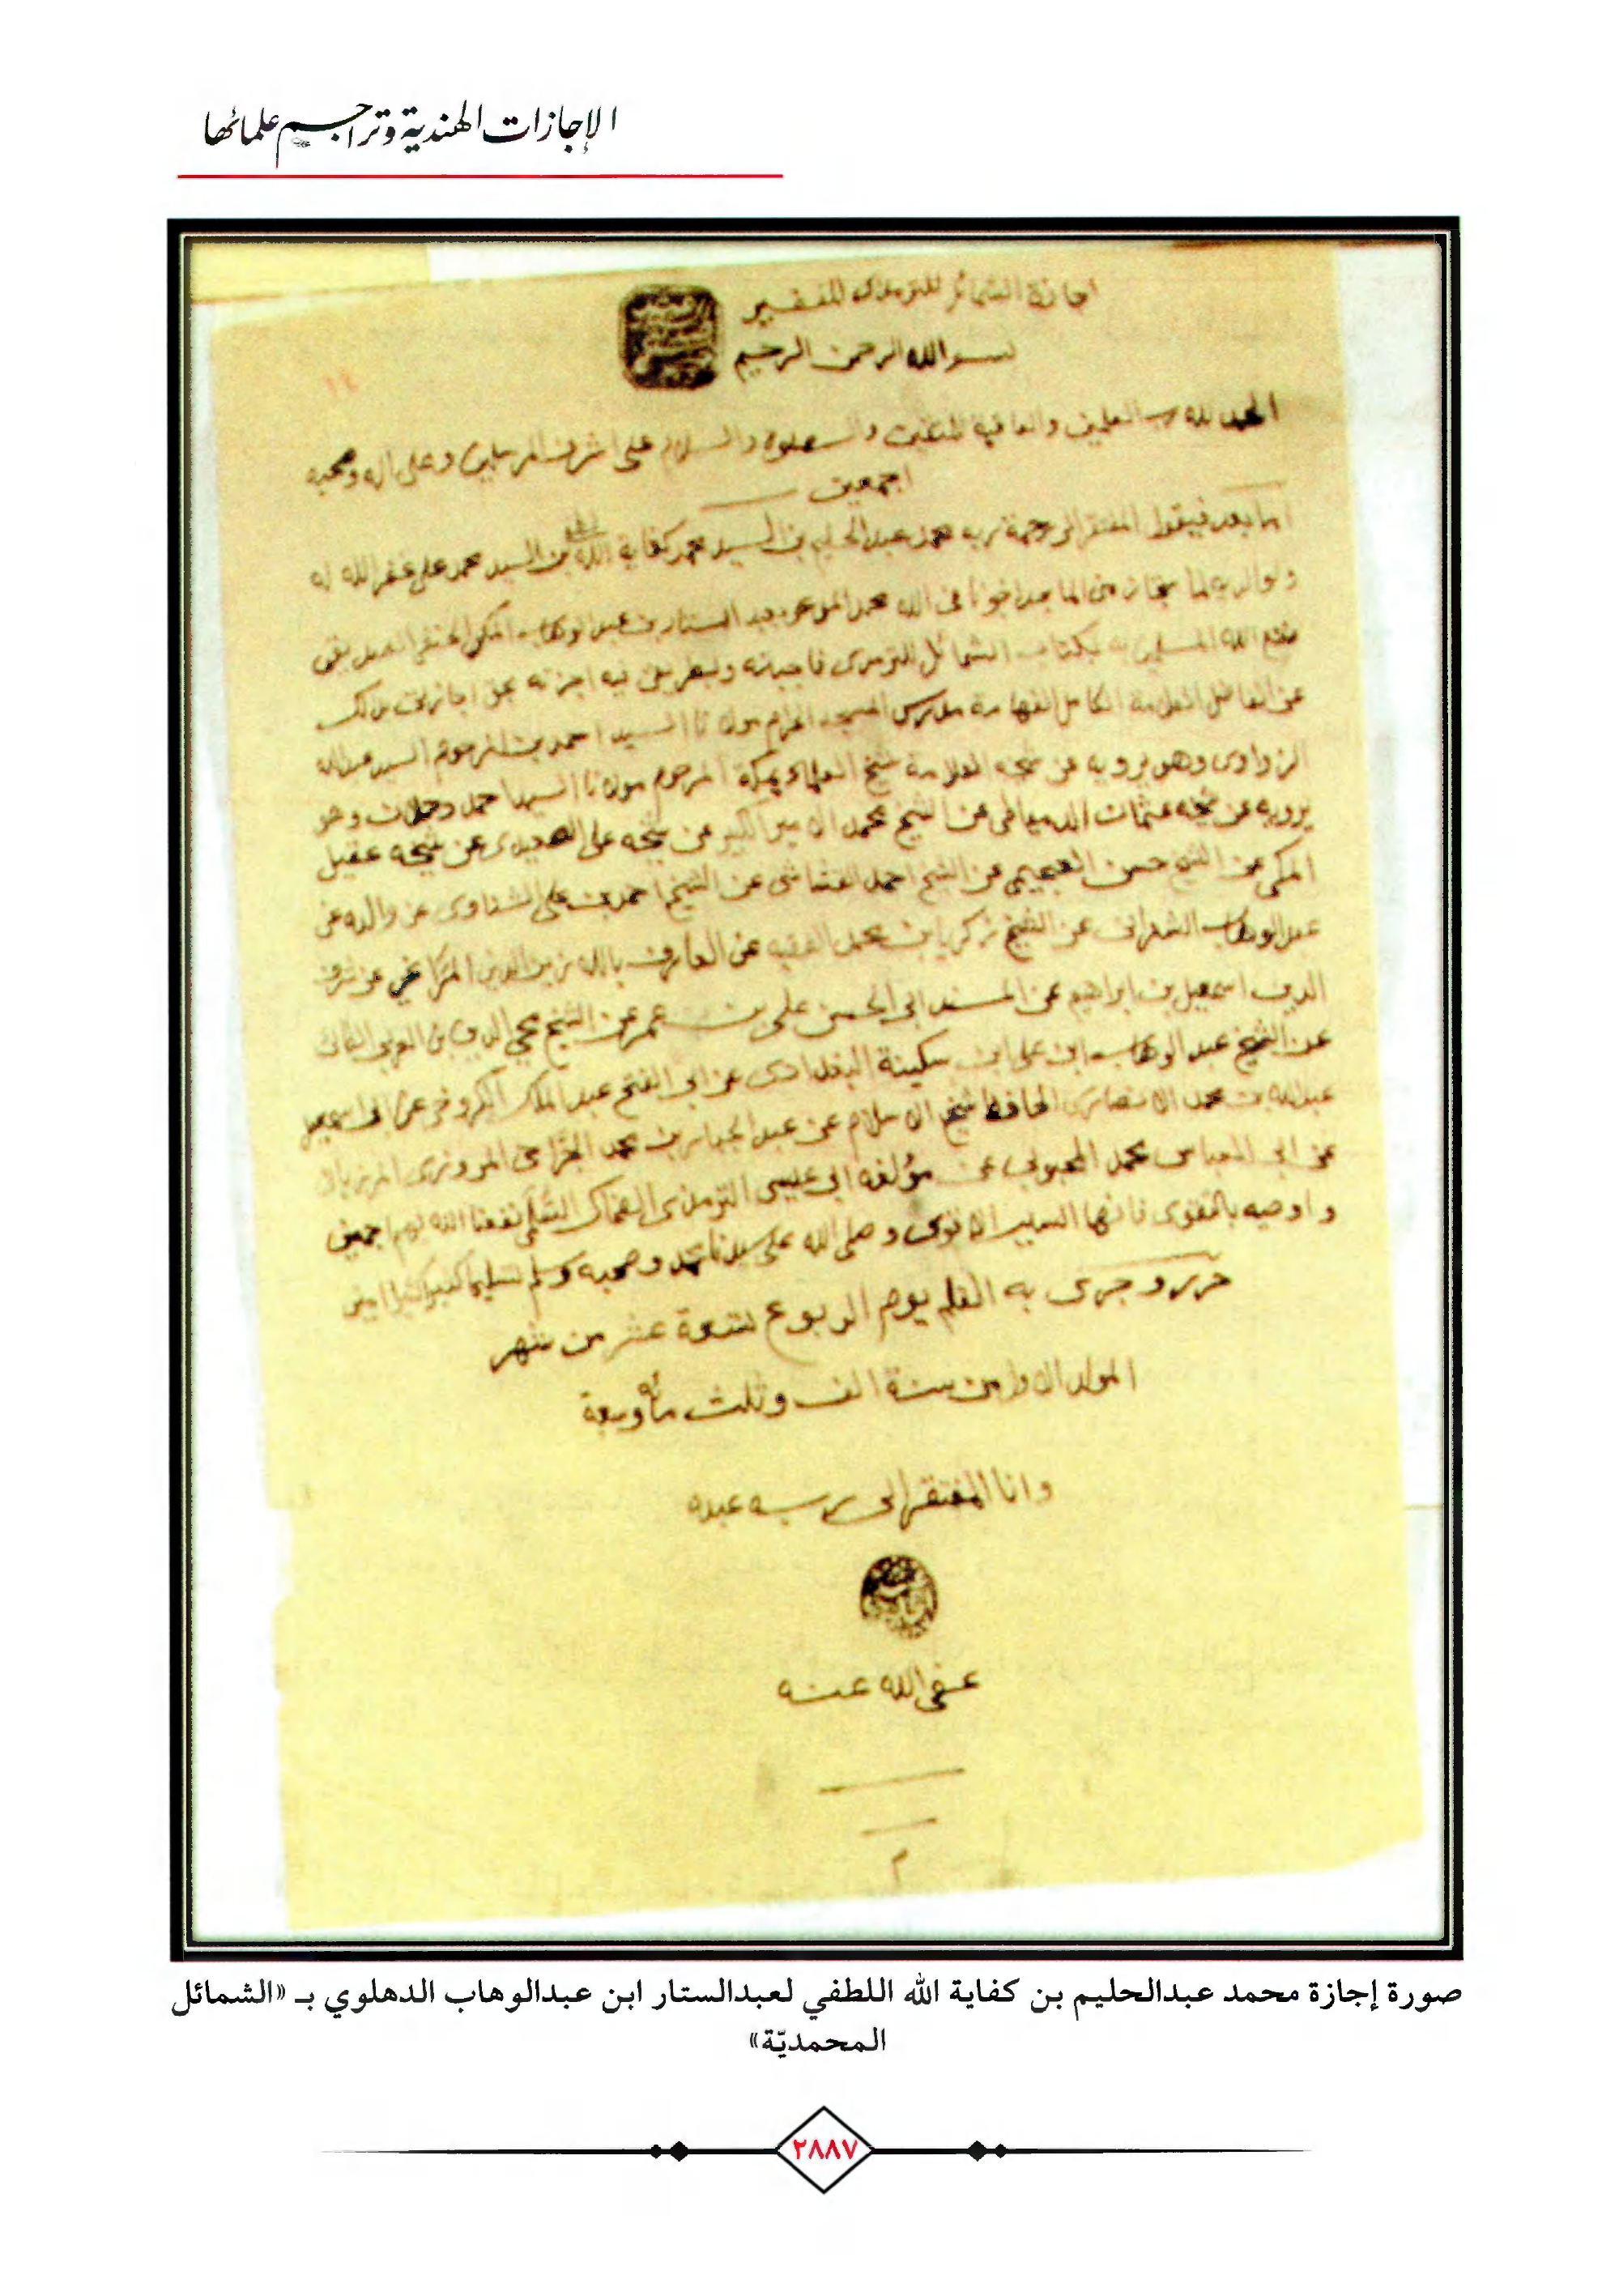 الإجازات الهندية وتراجم علمائها
اجازة الشمائل للترمذى للفقير
بسم الله الرحمن الرحيم
الحمد لله رب العلمين والعاقبة للمتقين والصلوة والسلام على اشرف المرسلين وعلى اله وصحبه
اجمعين
اما بعد فيقول المفتقر الى رحمة ربه محمد عبد الحليم بن السيد محمد كفاية الله بن السيد محمد على غفر الله له
ولوالديه لما استجاز منى الماجد اخونا فى الله محمد المدعو بعبد الستار بن عبد الوهاب المكى الحنفى الصديقى
متع الله المسلمين به بكتاب الشمائل للترمذى فاجبته اجزته بحق اجازتى بذلك
عن الفاضل العلامة الكامل الفهامة مدرس المسجد الحرام مولانا السيد احمد بن المرحوم السيد عبد الله
الزواوى وهو يرويه عن شيخه العلامة شيخ العلماء بمكة المرحوم مولانا السيد احمد دحلان وهو
يرويه عن شيخه عثمان الدمياطى عن الشيخ محمد الامير الكبير عن شيخه على الصعيدى عن شيخه عقيل
المكى عن الشيخ حسن العجيمى عن الشيخ احمد القشاشى عن الشيخ احمد بن على الشناوى عن والده عن
عبد الوهاب الشعرانى عن الشيخ زكريا بن محمد الفقيه عن العارف بالله زين الدين المراغى عن شرف
الدين اسمعيل بن ابراهيم عن المسند ابى الحسن على بن عمر عن الشيخ محى الدين بن العربى
عن الشيخ عبد الوهاب ابن على ابن سكينة البغدادى عن ابى الفتح عبد الملك الكروخى عن ابى اسمعيل
عبد الله بن محمد الانصارى الحافظ شيخ الاسلام عن عبد الجبار بن محمد الجراحى المروزى المرزبانى
عن ابى العباس محمد المحبوبى عن مؤلفه ابى عيسى الترمذى الضحاك السلمى نفعنا الله بهم اجمعين
و اوصيه بالتقوى فانها السبب الاقوى وصلى الله على سيدنا محمد وصحبه وسلم تسليما كثيرا كثيرا امين
حرر وجرى به القلم يوم الربوع عشر من شهر
المولد الاول من سنة الف وثلث مأة
وانا المفتقر الى ربه عبده
عفى الله عنه
م
صورة إجازة محمد عبدالحليم بن كفاية الله اللطفي لعبدالستار ابن عبدالوهاب الدهلوي بـ «الشمائل
المحمديّة»
٢٨٨٧